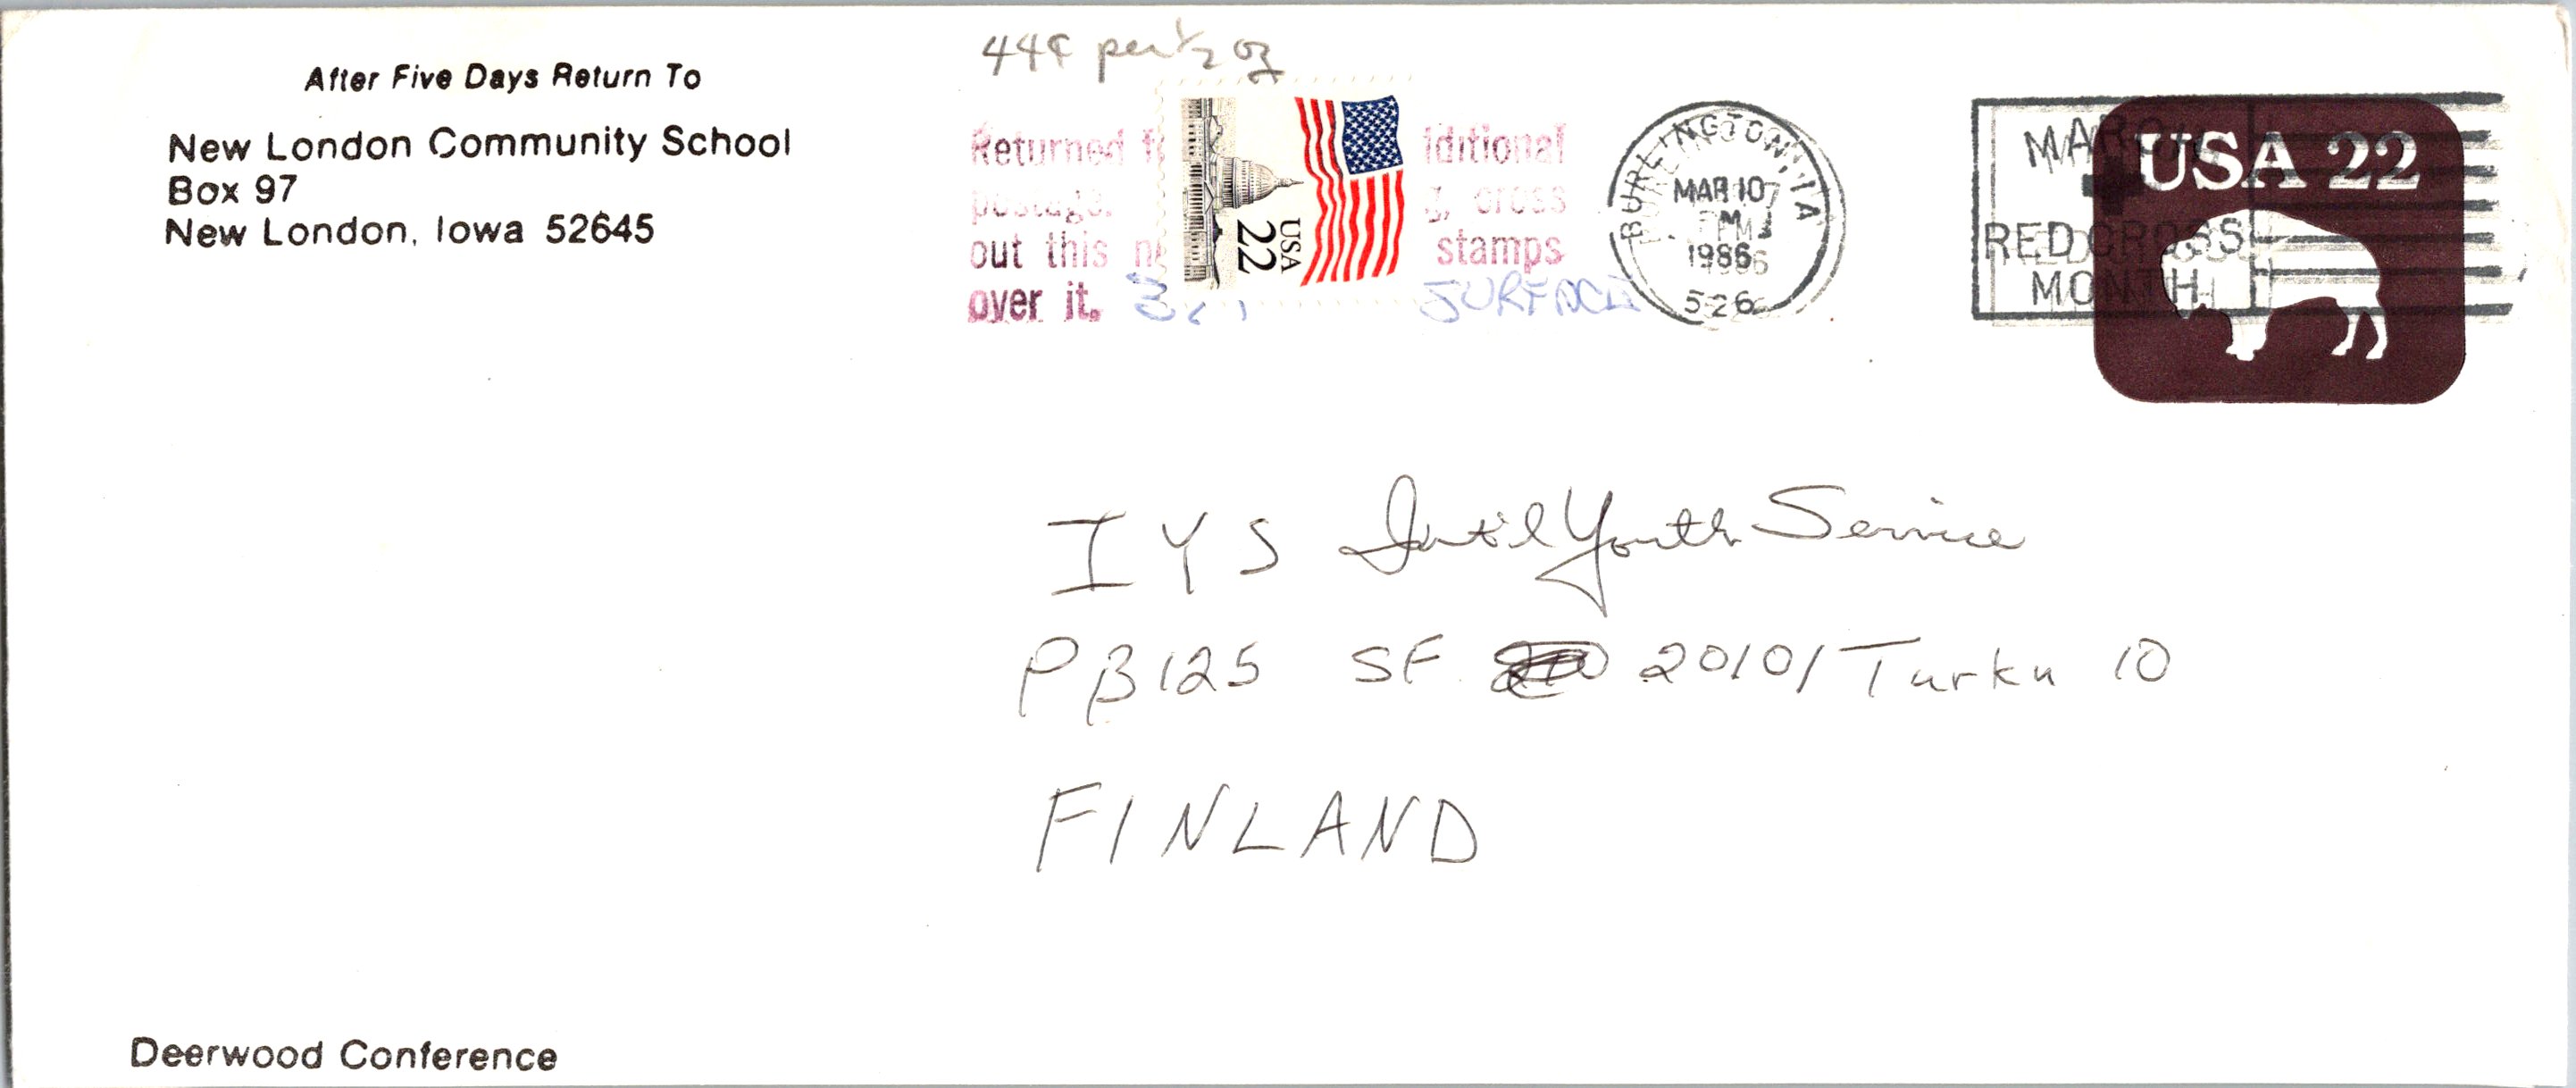 After Five Days Return To
New London Community School
Box 97
New London, Iowa 52645
44¢ per ½ oz
Returned ditional
postage. cross
out this stamps
over it. SURFACE
USA
22
BURLINGTON, IA
MAR 10
PM
1986
526
MARCH
RED CROSS
MONTH
USA 22
I Y S Int'l Youth Service
PB125 SF 20101 Turku 10
FINLAND
Deerwood Conference